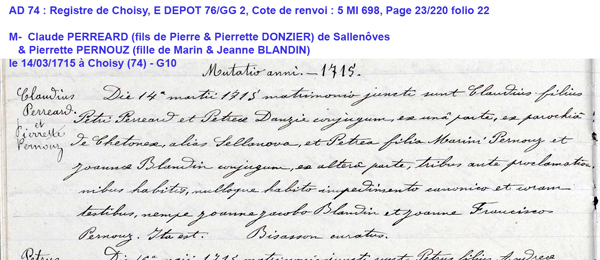 AD 74 : Registre de Choisy, E DEPOT 76/GG 2, Cote de renvoi : 5 MI 698, Page 23/220 folio 22
M- Claude PERREARD (fils de Pierre & Pierrette DONZIER) de Sallenôves
& Pierrette PERNOUZ (fille de Marin & Jeanne BLANDIN)
le 14/03/1715 à Choisy (74) - G10
Mutatio anni. - 1715.
Claudius
Perreard
et
Pierrette
Pernouz
Die 14a martii 1715 matrimonio juncti sunt Claudius filius
Petri Perreard et Petreae Danzie conjugum, ex una parte, ex parochia
de Chetonex, alias Sellanova, et Petrea filia Marini Pernouz et
Joannae Blandin conjugum, ex altera parte, tribus ante proclamation
nibus habitis, nulloque habito impedimento canonico et coram
testibus, nempe Joanne Jacobo Blandin et Joanne Francisco
Pernouz. Ita est. Bisasson curatus.
Petrus Die 1715 matrimonio juncti sunt Petrus filius Andreae